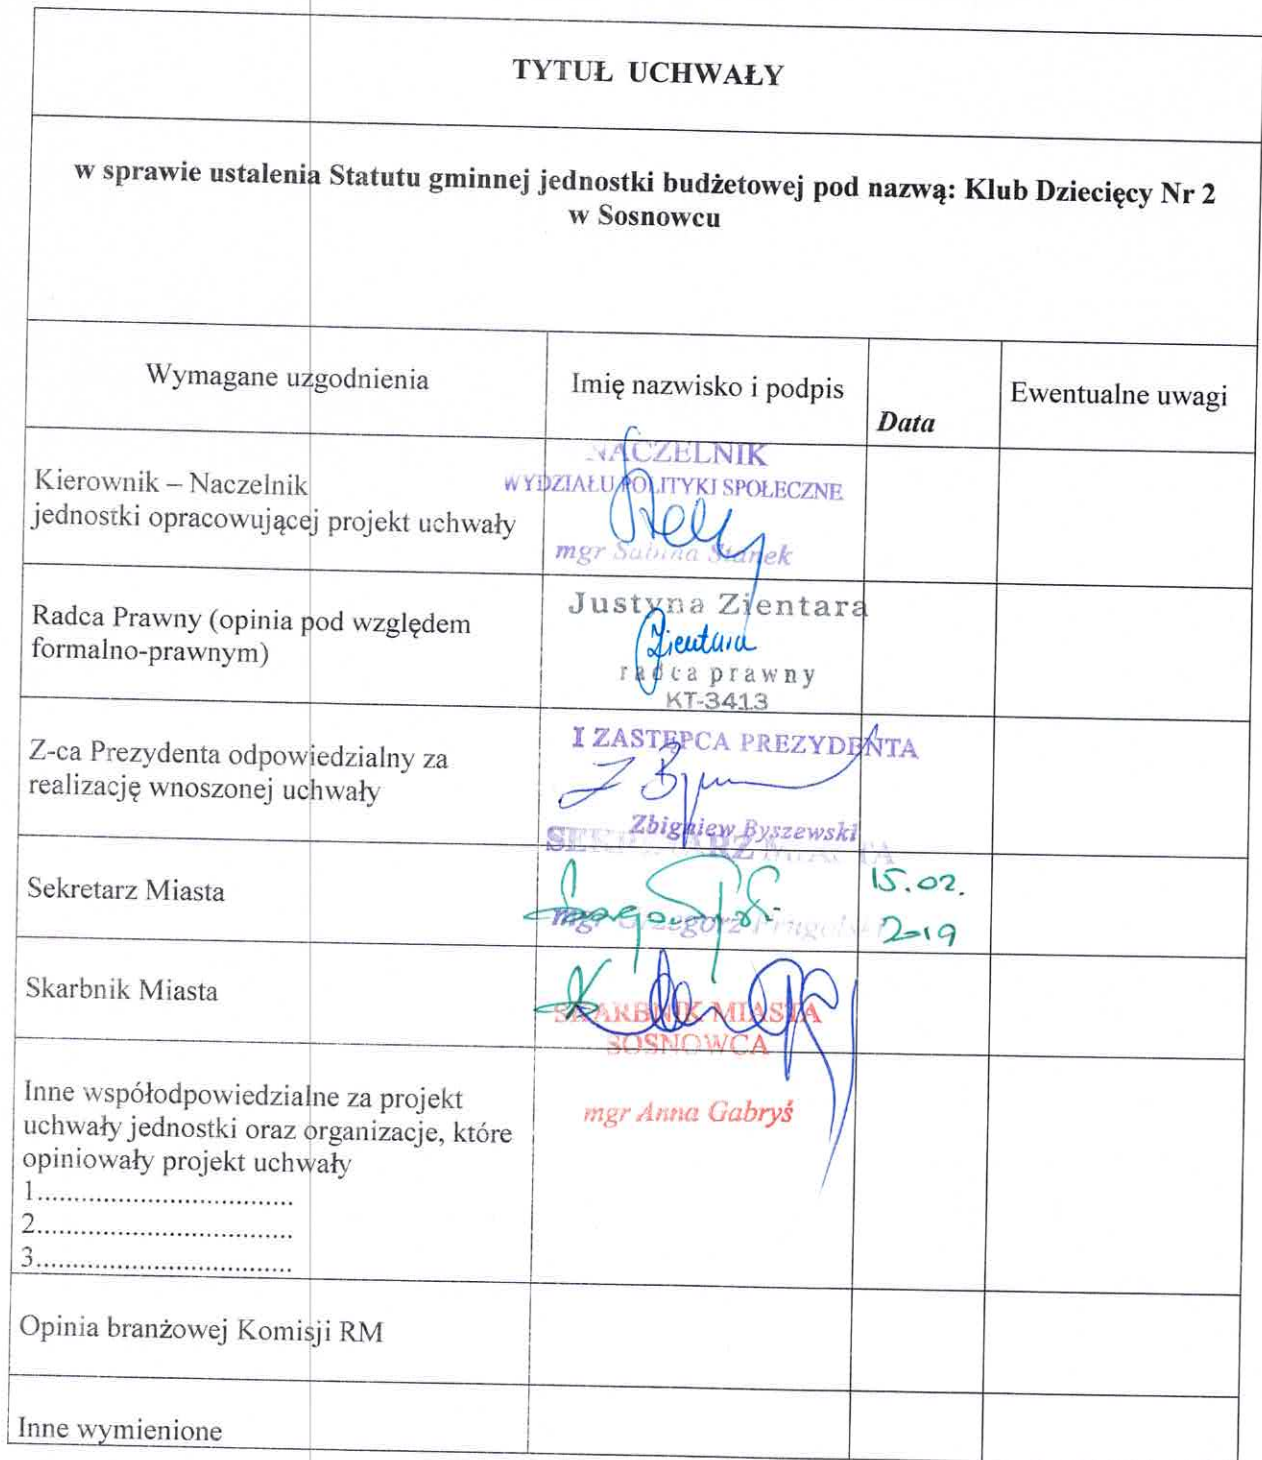 TYTUŁ UCHWAŁY
w sprawie ustalenia Statutu gminnej jednostki budżetowej pod nazwą: Klub Dziecięcy Nr 2
w Sosnowcu
Wymagane uzgodnienia
Imię nazwisko i podpis
Data
Ewentualne uwagi
Kierownik – Naczelnik
jednostki opracowującej projekt uchwały
NACZELNIK
WYDZIAŁU POLITYKI SPOŁECZNE
mgr Sabina Stanek
Radca Prawny (opinia pod względem
formalno-prawnym)
Justyna Zientara
Zientara
radca prawny
KT-3413
Z-ca Prezydenta odpowiedzialny za
realizację wnoszonej uchwały
I ZASTĘPCA PREZYDENTA
Zbigniew Byszewski
Sekretarz Miasta
SEKRETARZ MIASTA
mgr Grzegorz
15.02.
2019
Skarbnik Miasta
SKARBNIK MIASTA
SOSNOWCA
mgr Anna Gabryś
Inne współodpowiedzialne za projekt
uchwały jednostki oraz organizacje, które
opiniowały projekt uchwały
1..................................
2..................................
3..................................
Opinia branżowej Komisji RM
Inne wymienione